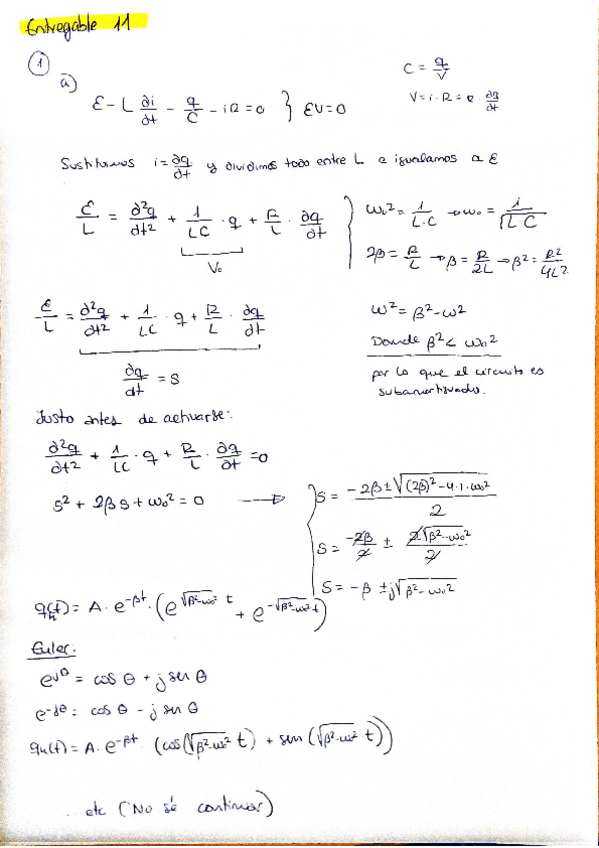 Entregable 11
①
a)
ε - L ∂i/∂t - q/C - iR = 0 } ΣV = 0
C = q/V
V = i · R = R · ∂q/∂t
Sustituimos i = ∂q/∂t y dividimos todo entre L e igualamos a ε
ε/L = ∂²q/∂t² + 1/LC · q + R/L · ∂q/∂t
V₀
ω₀² = 1/L·C → ω₀ = 1/√LC
2β = R/L → β = R/2L → β² = R²/4L²
ε/L = ∂²q/∂t² + 1/LC · q + R/L · ∂q/∂t
∂q/∂t = S
ω² = β² - ω²
Donde β² < ω₀²
por lo que el circuito es
subamortiguado.
Justo antes de activarse:
∂²q/∂t² + 1/LC · q + R/L · ∂q/∂t = 0
s² + 2βs + ω₀² = 0 →
S = -2β ± √(2β)² - 4·1·ω₀² / 2
S = -2β/2 ± 2√β² - ω₀² / 2
S = -β ± j√β² - ω₀²
qₕ(t) = A · e^-βt · (e^√β²-ω₀² t + e^-√β²-ω₀² t)
Euler:
e^jθ = cos θ + j sen θ
e^-jθ = cos θ - j sen θ
qₕ(t) = A · e^-βt · (cos(√β²-ω₀² t) + sen(√β²-ω₀² t))
... etc (No sé continuar)